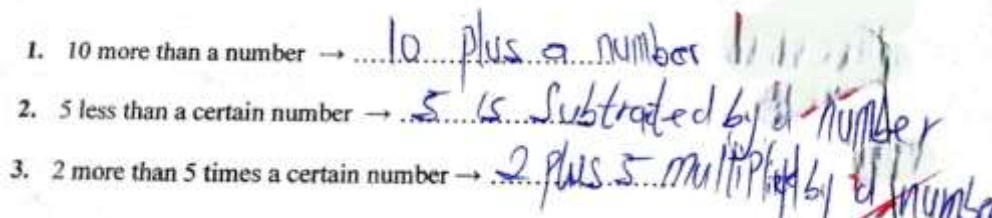 1. 10 more than a number → ....10 plus a number
2. 5 less than a certain number → ..5 is Subtrated by a number
3. 2 more than 5 times a certain number → ..2 plus 5 multiplied by a numbe